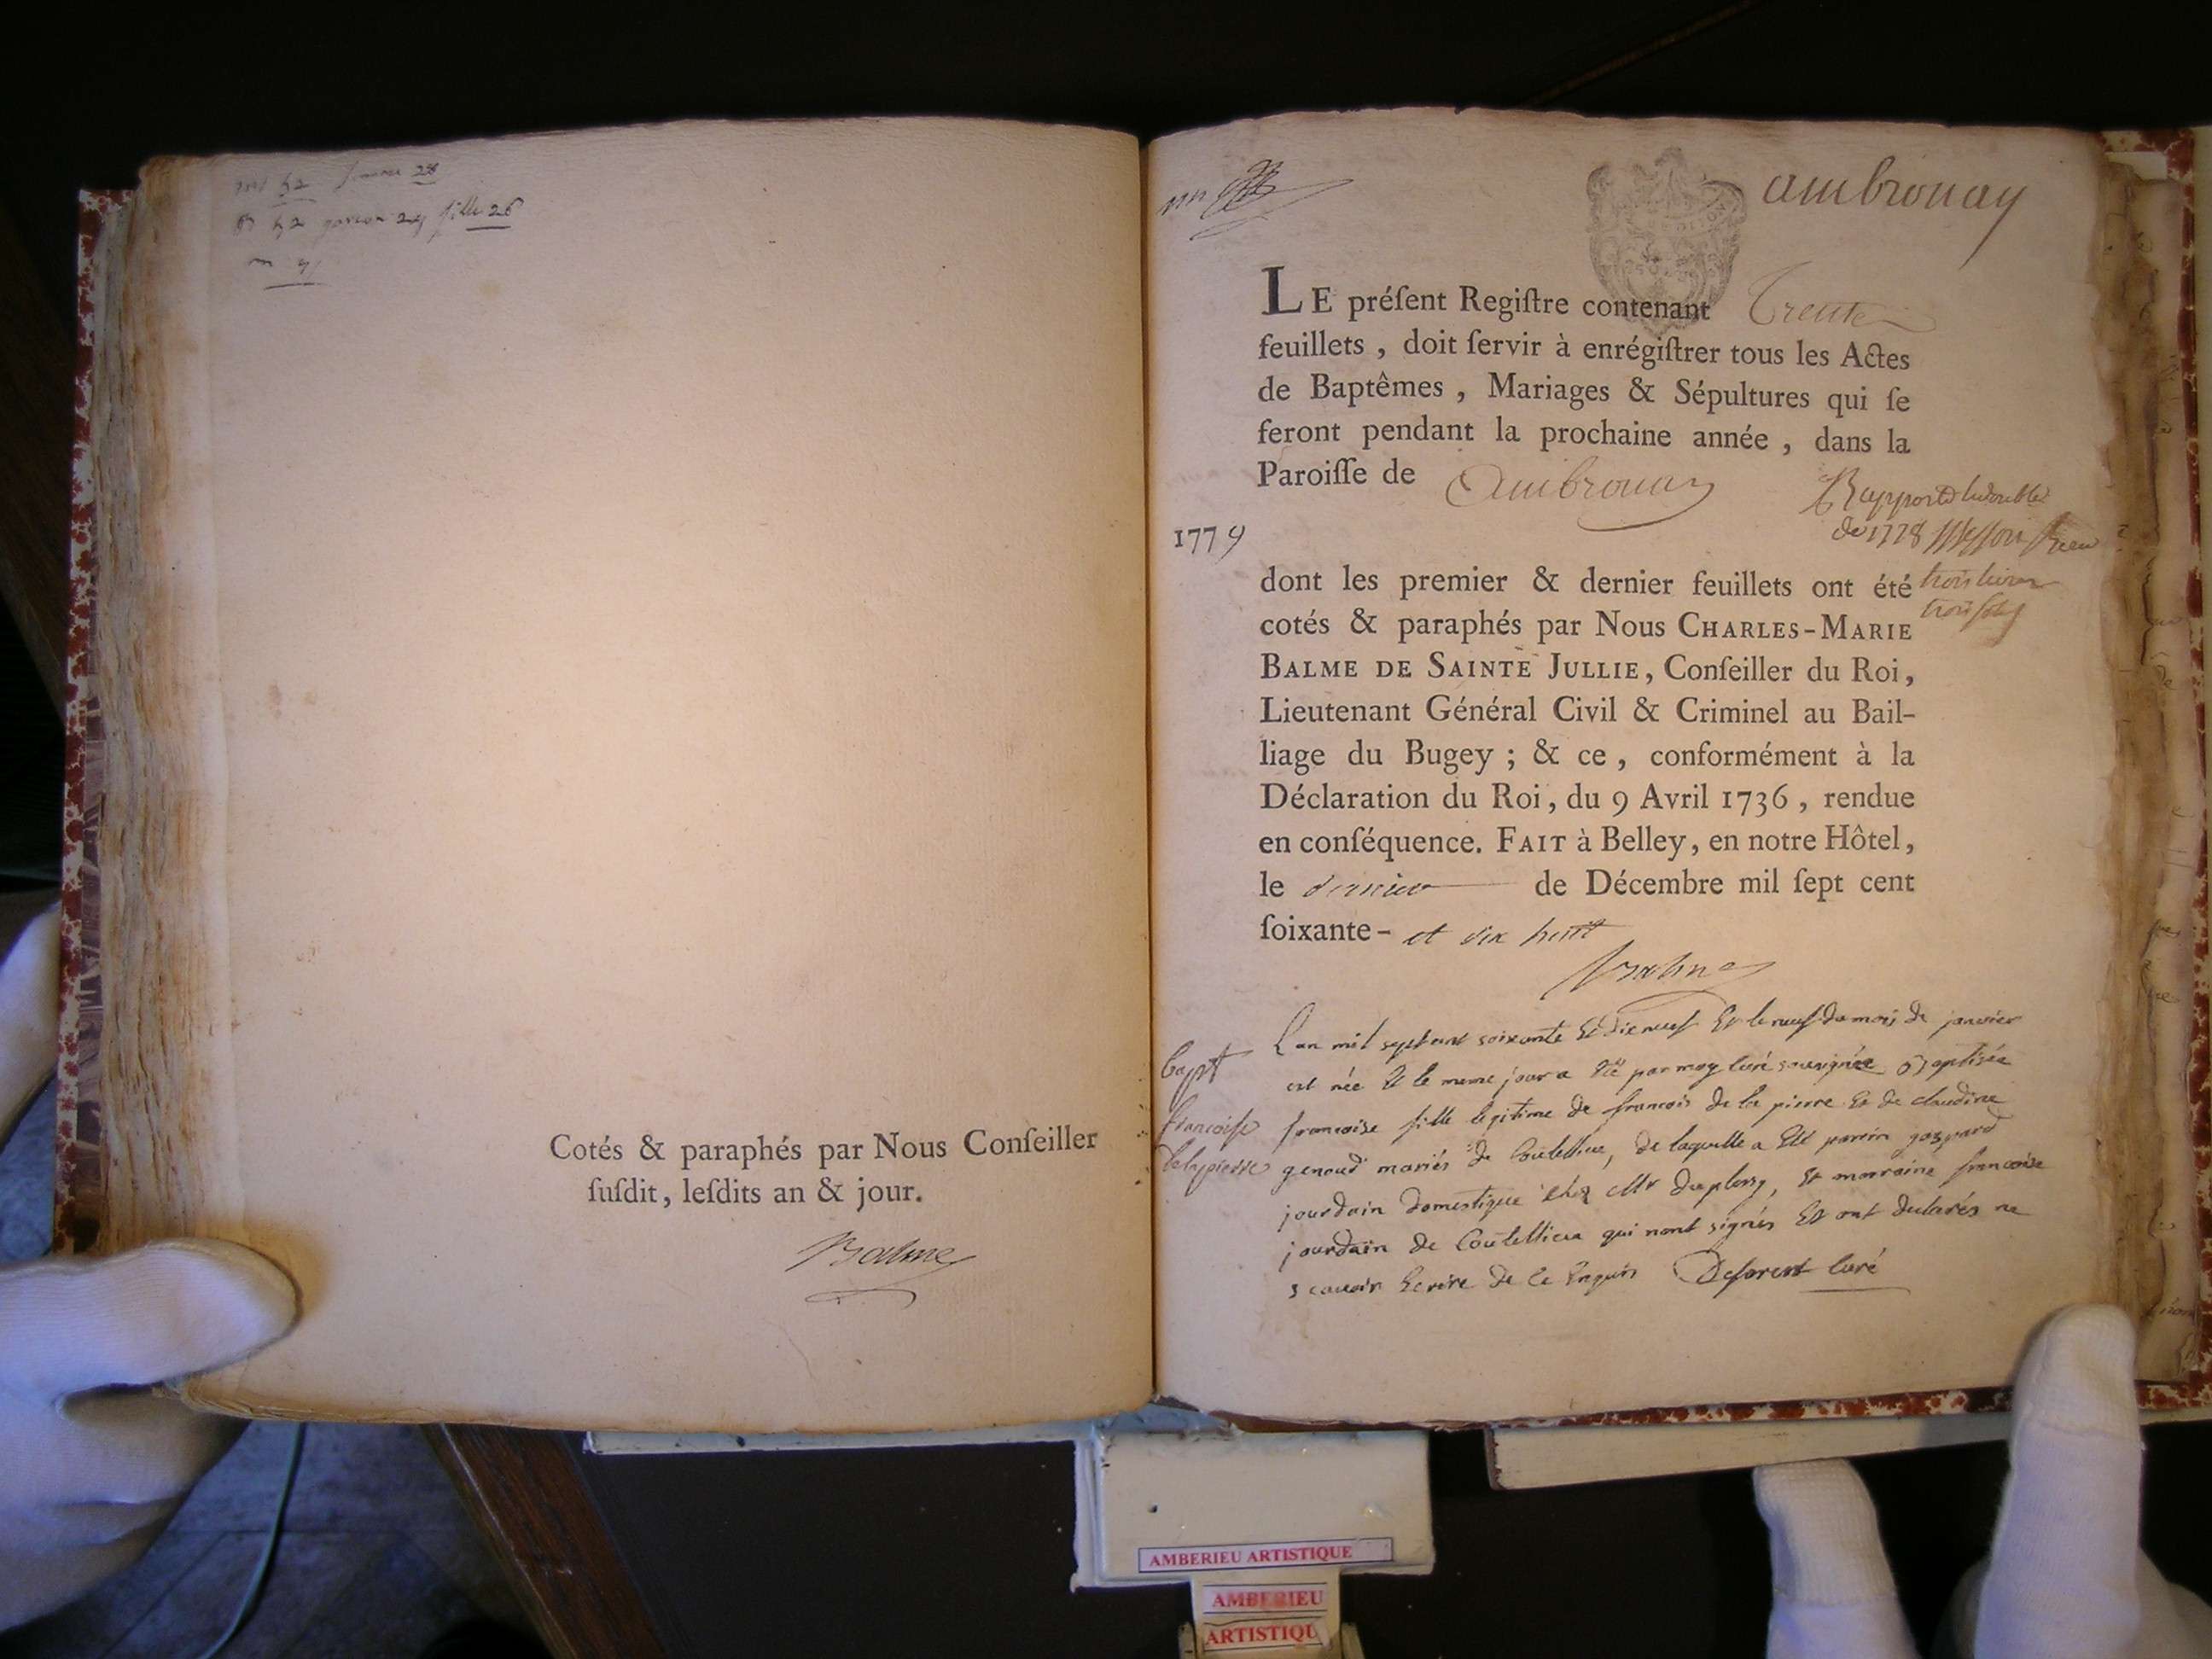 52 garcon fille 26
Cotés & paraphés par Nous Conſeiller
ſuſdit, leſdits an & jour.
Balme
ambronay
LE préſent Regiſtre contenant Trente
feuillets, doit ſervir à enrégiſtrer tous les Actes
de Baptêmes, Mariages & Sépultures qui ſe
feront pendant la prochaine année, dans la
Paroiſſe de Ambronay
de 1778
1779
dont les premier & dernier feuillets ont été
trois livres
trois sols
cotés & paraphés par Nous CHARLES-MARIE
BALME DE SAINTE JULLIE, Conſeiller du Roi,
Lieutenant Général Civil & Criminel au Bail-
liage du Bugey; & ce, conformément à la
Déclaration du Roi, du 9 Avril 1736, rendue
en conſéquence. FAIT à Belley, en notre Hôtel,
le dernier de Décembre mil ſept cent
ſoixante- et dix huit
Balme
Bapt
francoise
delapierre
L'an mil sept cent soixante et dix neuf et le neuf du mois de janvier
est née et le meme jour a été par moy curé sousignée baptisée
francoise fille legitime de francois de la pierre et de claudine
genoud mariés de Coutelieu, de laquelle a été parrin gaspard
jourdain domestique chez Mr duplessy, et marraine francoise
jourdain de Coutelieu qui nont signés et ont declarés ne
scavoir ecrire de ce enquis Deforest curé
AMBERIEU ARTISTIQUE
AMBERIEU
ARTISTIQU